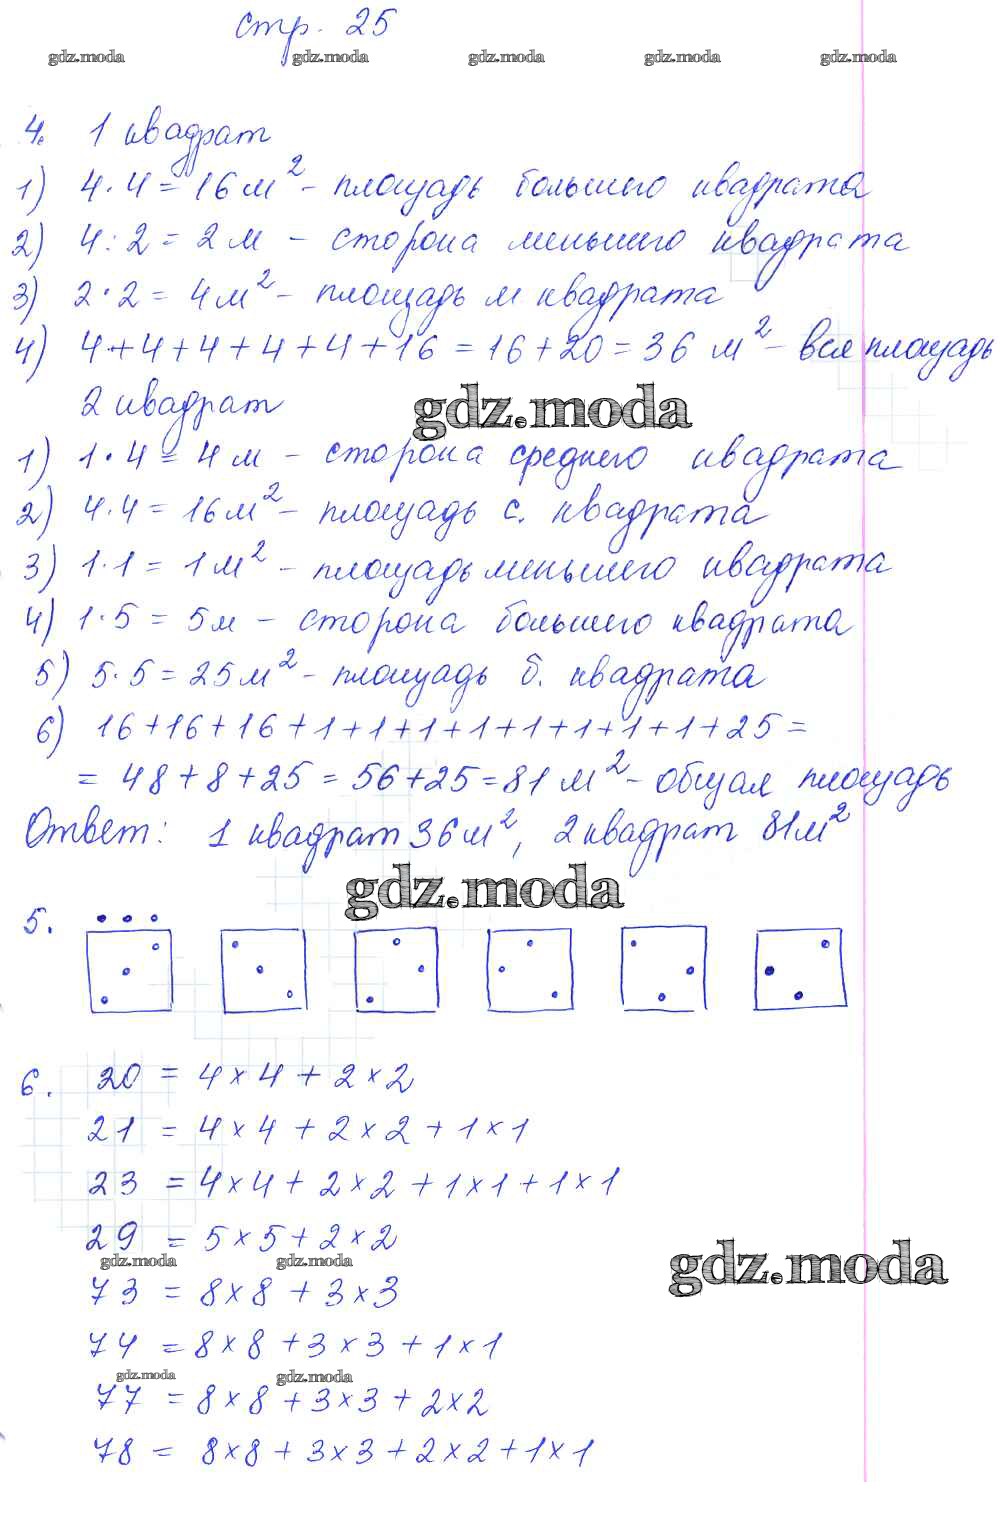 стр. 25
gdz.moda gdz.moda gdz.moda gdz.moda gdz.moda
4. 1 квадрат
1) 4·4 = 16 м² - площадь большего квадрата
2) 4:2 = 2 м - сторона меньшего квадрата
3) 2·2 = 4 м² - площадь м квадрата
4) 4+4+4+4+4+16 = 16+20 = 36 м² - вся площадь
2 квадрат
gdz.moda
1) 1·4 = 4 м - сторона среднего квадрата
2) 4·4 = 16 м² - площадь с. квадрата
3) 1·1 = 1 м² - площадь меньшего квадрата
4) 1·5 = 5 м - сторона большего квадрата
5) 5·5 = 25 м² - площадь б. квадрата
6) 16+16+16+1+1+1+1+1+1+1+1+25 =
= 48+8+25 = 56+25 = 81 м² - общая площадь
Ответ: 1 квадрат 36 м², 2 квадрат 81 м²
gdz.moda
5.
6. 20 = 4×4 + 2×2
21 = 4×4 + 2×2 + 1×1
23 = 4×4 + 2×2 + 1×1 + 1×1
29 = 5×5 + 2×2
gdz.moda gdz.moda gdz.moda
73 = 8×8 + 3×3
74 = 8×8 + 3×3 + 1×1
gdz.moda gdz.moda
77 = 8×8 + 3×3 + 2×2
78 = 8×8 + 3×3 + 2×2 + 1×1